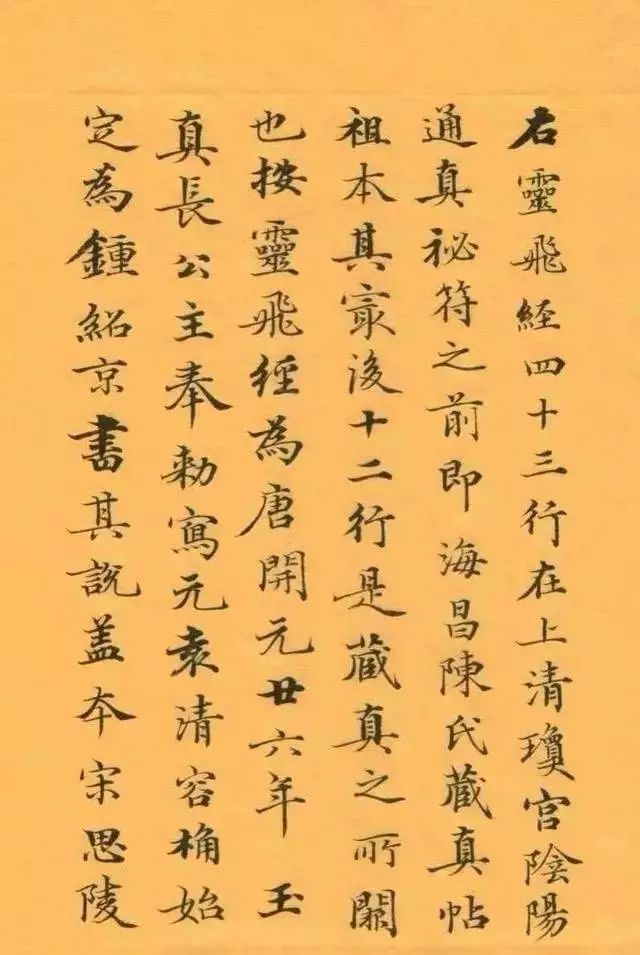 右靈飛經四十三行在上清瓊宫陰陽
通真祕符之前即海昌陳氏蔵真帖
祖本其㝡後十二行是蔵真之所闕
也按靈飛經為唐開元廿六年玉
真長公主奉勅寫元袁清容桷始
定為鍾紹京書其說蓋本宋思陵